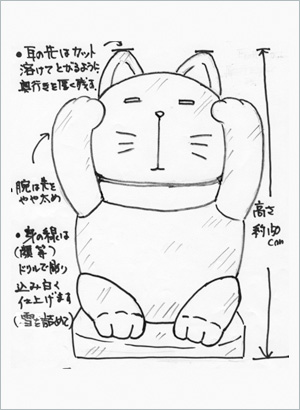 ●耳の先はカット
溶けてとがるように
奥行きを厚く残る
腕は表を
やや太め
●身の線は
(顔等)
ドリルで彫り
込み白く
仕上げます
(雪を詰めて)
高さ
約150
cm